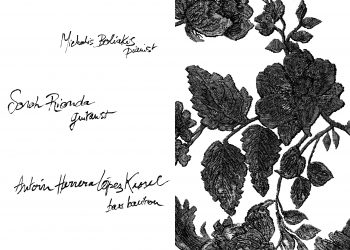 Michalis Boliakis
pianist
Sarah Rionda
guitarist
Antoin Herrera López Kessel
bass baritone